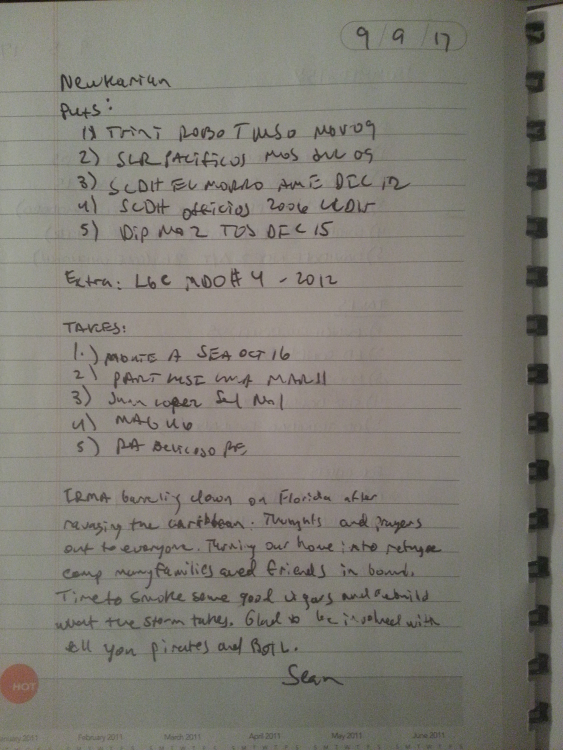 9/9/17
Newkarian
Puts:
1) Trini Robo T MSO NOV 09
2) SLR PACIFICOS MOS JUL 09
3) SCDH EL MORRO AME DEC 12
4) SCDH officios 2006
5) Dip No 2 TOS DEC 15
Extra: LGC MDO# 4 - 2012
TAKES:
1.) MONTE A SEA OCT 16
2) PART MAR 11
3) Juan Lopez Sel No 1
4) MAG 46
5) RA Belicoso RE
IRMA barreling down on Florida after
ravaging the caribbean. Thoughts and prayers
out to everyone. Turning our home into refugee
camp many families and friends in bound.
Time to smoke some good cigars and rebuild
what the storm takes. Glad to be involved with
all you pirates and BOTL.
Sean
HOT
February 2011 March 2011 April 2011 May 2011 June 2011